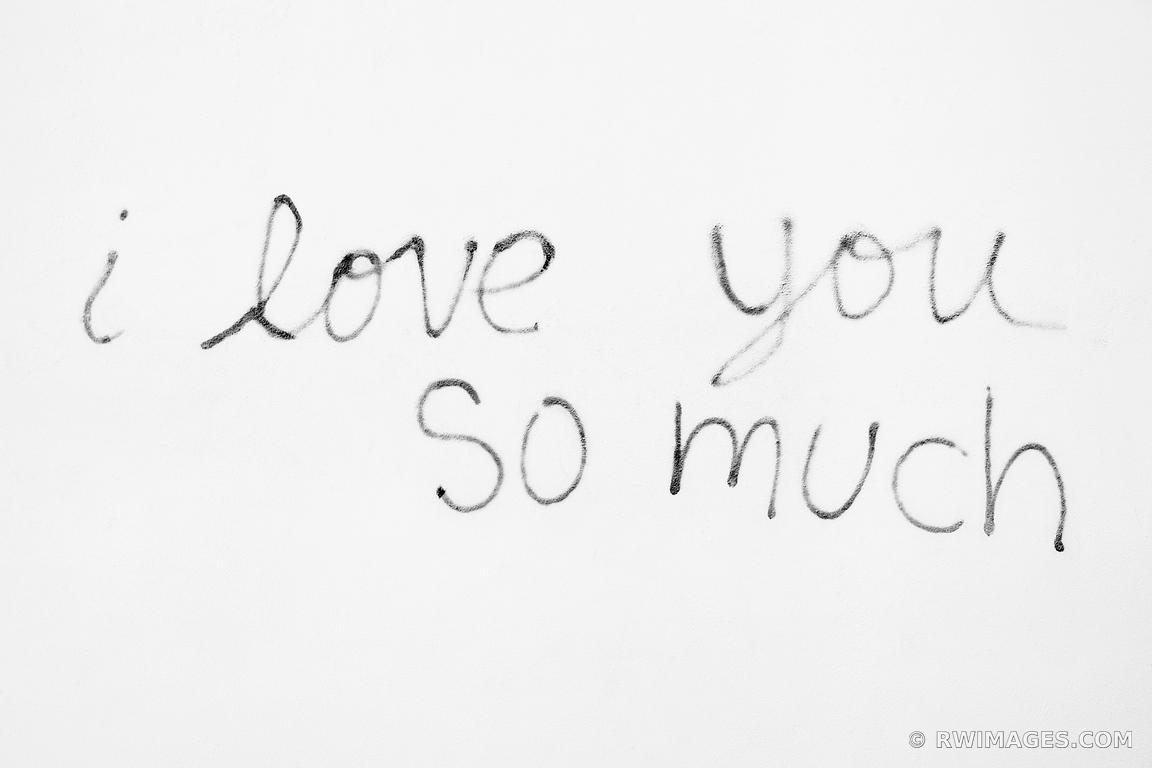 i love you
so much
© RWIMAGES.COM